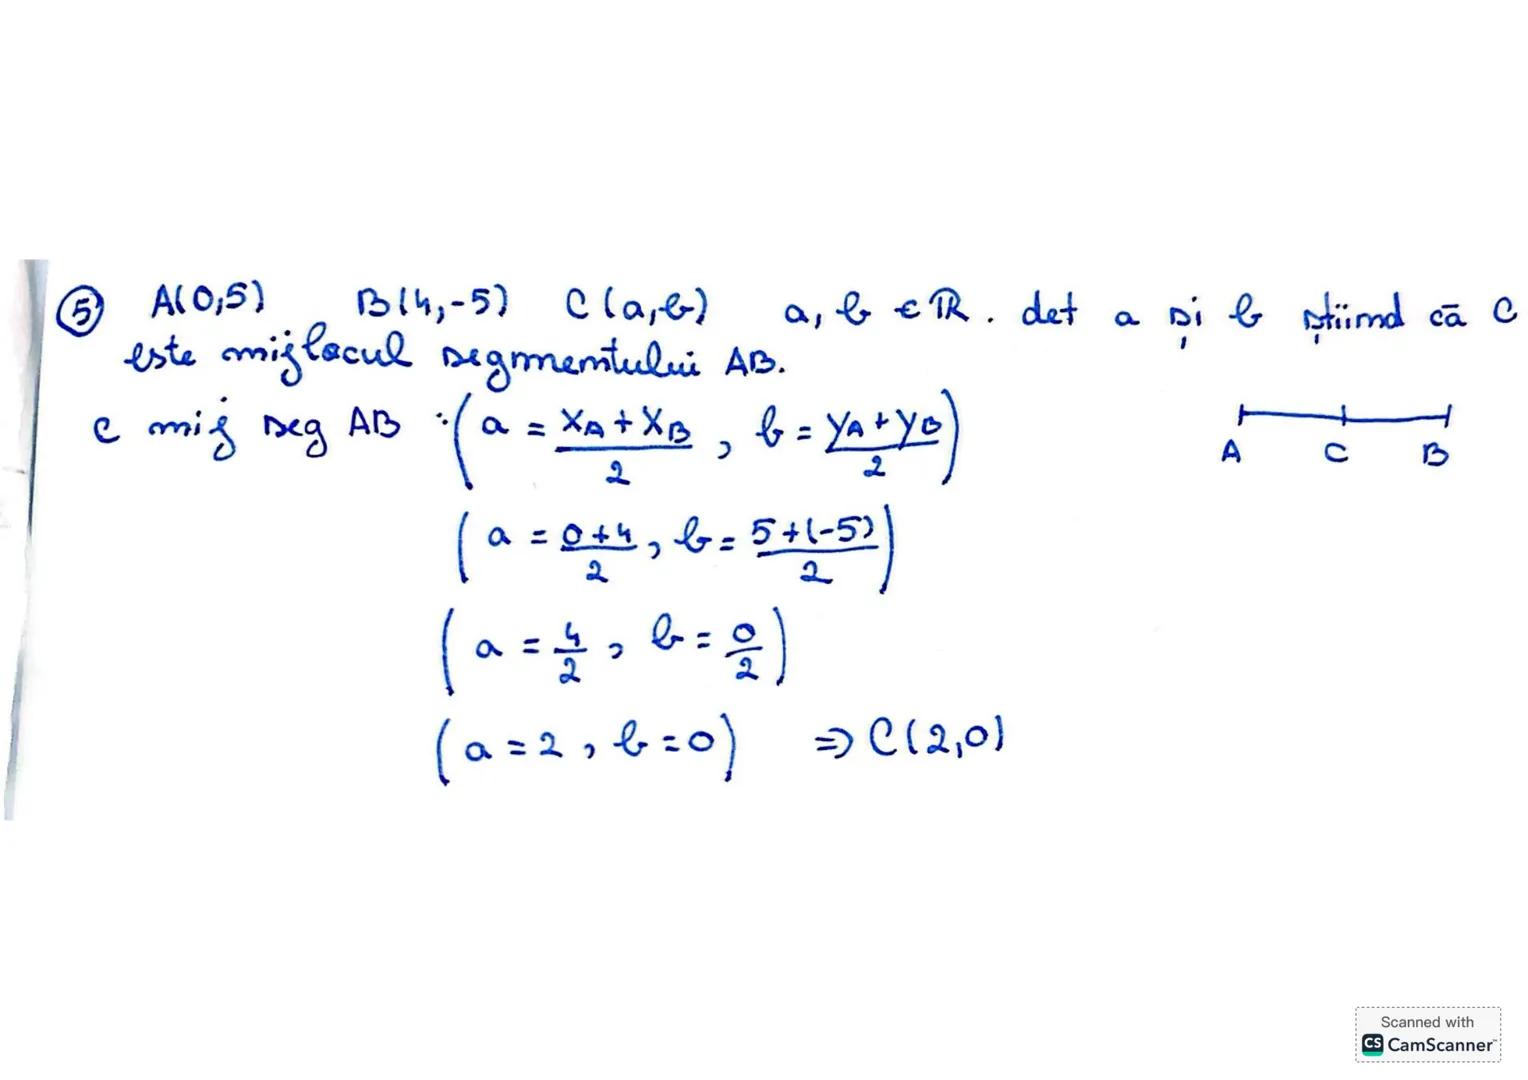 5 A(0,5) B(4,-5) C(a,b) a, b ∈ ℝ. det a și b știind că C
este mijlocul segmentului AB.
C mij seg AB : (a = (xA + xB)/2, b = (yA + yB)/2)
A C B
(a = (0+4)/2, b = (5+(-5))/2)
(a = 4/2, b = 0/2)
(a = 2, b = 0) ⇒ C(2,0)
Scanned with
CS CamScanner